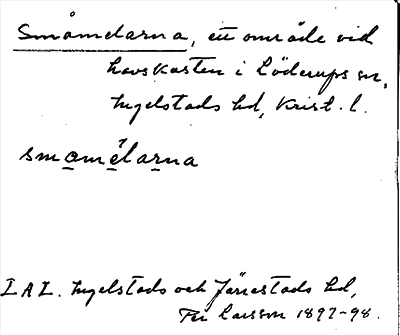 Småmelarna, ett område vid
havskusten i Löderups sn,
Ingelstads hd, Krist. l.
småmelarna
LAL. Ingelstads och Järrestads hd,
Per Larsson 1897-98.